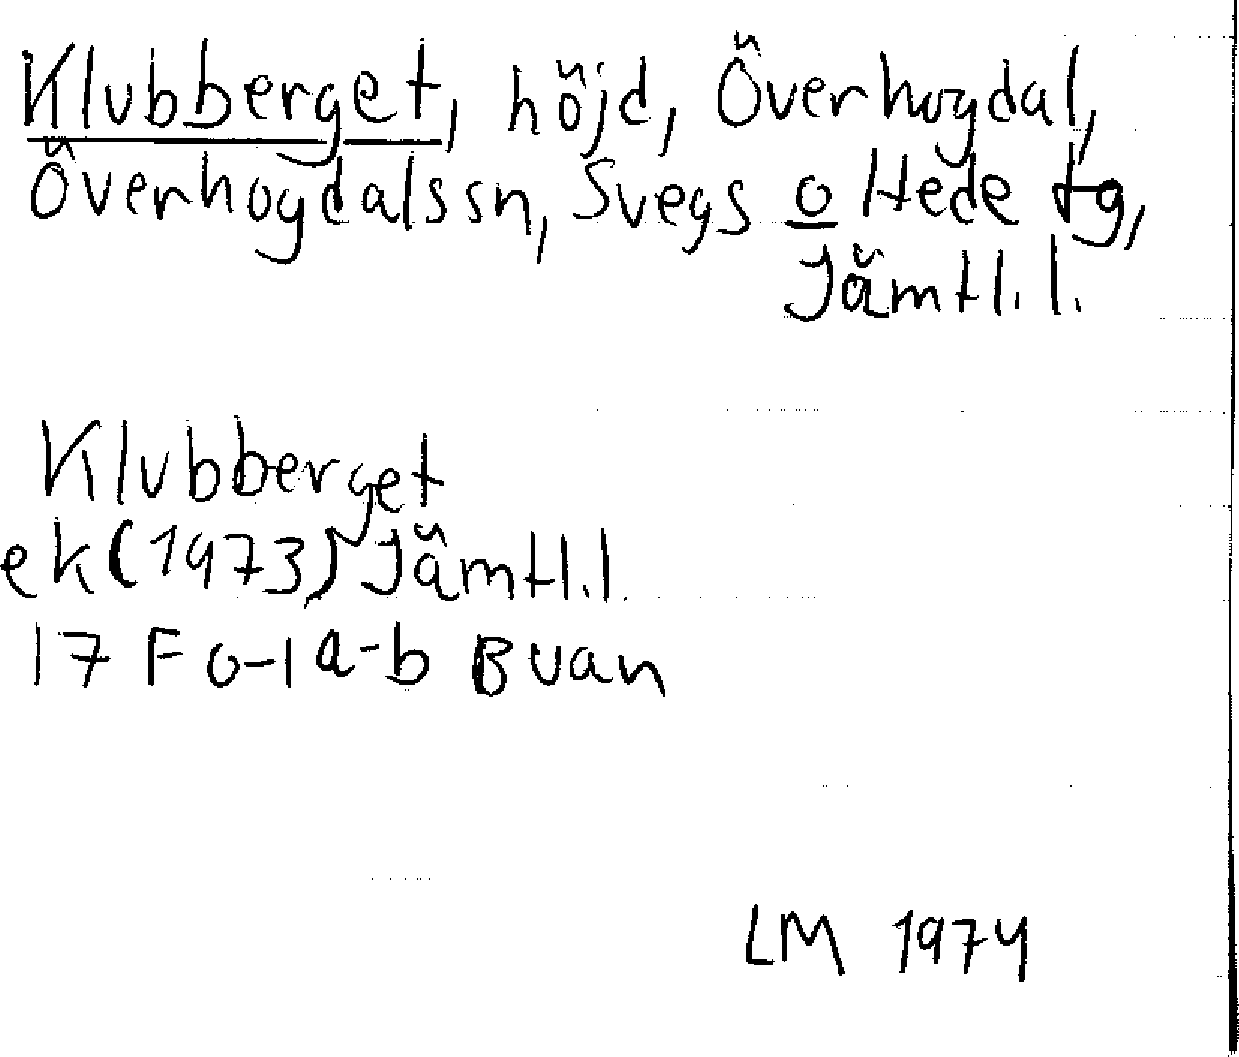 Klubberget, höjd, Överhogdal,
Överhogdalssn, Svegs o Hede tg,
Jämtl. l.
Klubberget
ek (1973) Jämtl. l.
17 F 0-1 a-b Buan
LM 1974